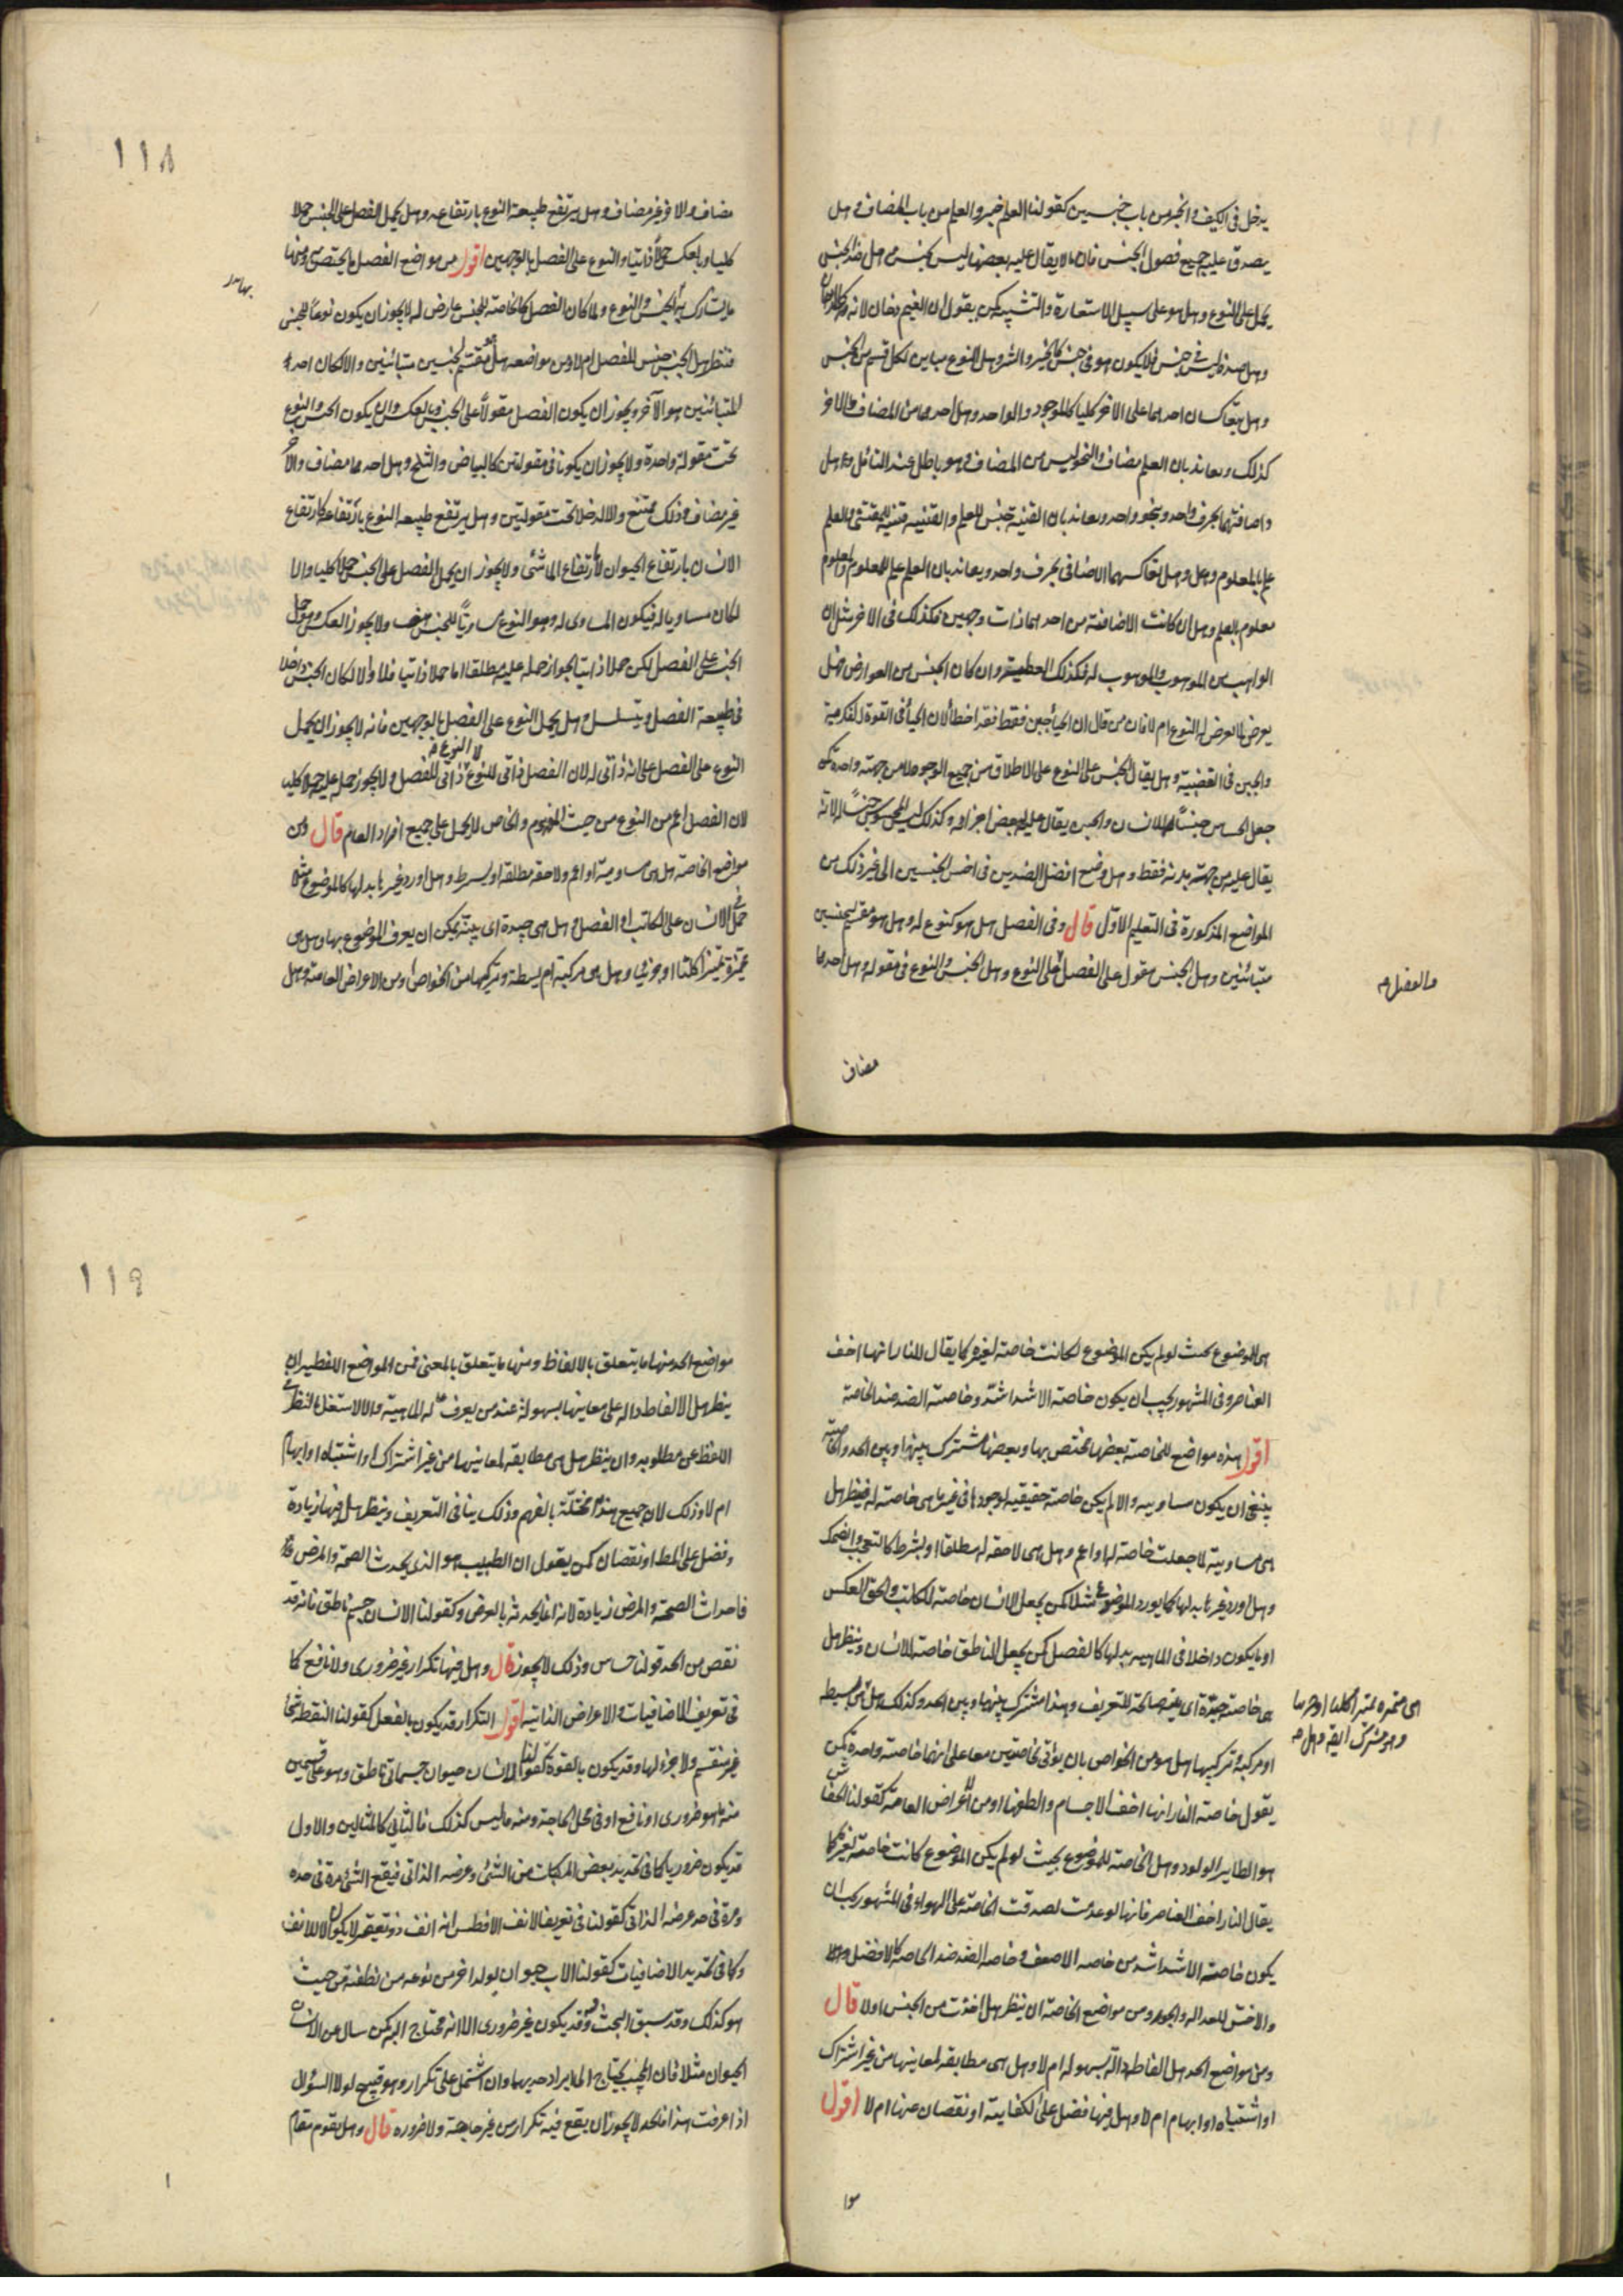 يدخل في الكيف والخير من باب جنسين كقولنا العلم خير والعلم من باب المضاف وهل
يصدق عليه جميع فصول الجنس فان ما لا يقال عليه بعضها ليس بجنس وهل ضد الجنس
يحمل على النوع وهل هو على سبيل الاستعارة والتشبيه كمن يقول ان الغيم دخان لانه كالدخان
وهل ضده ليس في جنس فلا يكون هو في جنس كالخير والشر وهل النوع مباين لكل قسم من الجنس
وهل يتعاكسان احدهما على الاخر كليا كالموجود والواحد وهل احدهما من المضاف والاخر
كذلك ويعاند بان العلم مضاف والنحو ليس من المضاف وهو باطل عند القائل وهل
واضافتهما بحرف واحد وبنحو واحد ويعاند بان القنية جنس للعلم والقنية قنية للمقتني والعلم
علم بالمعلوم وهل تعاكسهما الاضافي بحرف واحد ويعاند بان العلم علم للمعلوم والمعلوم
معلوم بالعلم وهل ان كانت الاضافة من احدهما ذات وجهين فكذلك في الاخر مثل ان
الواهب من الموهوب والموهوب له فكذلك العطية وان كان الجنس من العوارض فهل
يعرض لما يعرض له النوع ام لا فان من قال ان الحياء جبن فقط فقد اخطأ لان الحياء في القوة الفكرية
والجبن في الغضبية وهل يقال الجنس على النوع على الاطلاق من جميع الوجوه لا من جهة واحدة كمن
جعل الحساس جنسا للانسان والجبن يقال عليه بعض اجزائه وكذلك ليس المحسوس جنسا له لانه
يقال عليه من جهة بدنه فقط وهل وضع افضل الضدين في اخس الجنسين الى غير ذلك من
المواضع المذكورة في التعليم الاول قال وفي الفصل هل هو كنوع له وهل هو مقسم لجنسين
متباينين وهل الجنس مقول على الفصل على النوع وهل الجنس والنوع في مقولة وهل احدهما
والفصل
مضاف
118
مضاف والاخر غير مضاف وهل يرتفع طبيعة النوع بارتفاعه وهل يحمل الفصل على الجنس حملا
كليا وبالعكس حملا ذاتيا والنوع على الفصل بالوجهين اقول من مواضع الفصل ما يختص به ومنها
ما يشارك به الجنس والنوع ولما كان الفصل كالخاصة للجنس عارض له لا يجوز ان يكون نوعا للجنس
فننظر هل الجنس جنس للفصل ام لا ومن مواضعه هل هو مقسم لجنسين متباينين والا لكان احد
المتباينين هو الآخر ويجوز ان يكون الفصل مقولا على الجنس وبالعكس وان يكون الجنس والنوع
تحت مقولة واحدة ولا يجوز ان يكونا في مقولتين كالبياض والثلج وهل احدهما مضاف والآخر
غير مضاف وذلك ممتنع والا لدخلا تحت مقولتين وهل يرتفع طبيعة النوع بارتفاعه كارتفاع
الانسان بارتفاع الحيوان لا بارتفاع الماشي ولا يجوز ان يحمل الفصل على الجنس حملا كليا والا
لكان مساويا له فيكون المساوي له وهو النوع مساويا للجنس هف ولا يجوز العكس وهو حمل
الجنس على الفصل لكن حملا ذاتيا لجواز حمله عليه مطلقا اما حملا ذاتيا فلا والا لكان الجنس داخلا
في طبيعة الفصل ويتسلسل وهل يحمل النوع على الفصل بالوجهين فانه لا يجوز ان يحمل
النوع على الفصل على انه ذاتي له لان الفصل ذاتي للنوع لا النوع ذاتي للفصل ولا يجوز حمله عليه حملا كليا
لان الفصل اعم من النوع من حيث المفهوم والخاص لا يحمل على جميع افراد العام قال ومن
مواضع الخاصة هل هي مساوية او اعم ولاحقة مطلقة او بشرط وهل اورد غيرها بدلها كالموضوع مثلا
حمل الانسان على الكاتب او الفصل وهل هي جيدة اي بينة يمكن ان يعرف الموضوع بها وهل هي
مميزة تمييزا كليا او جزئيا وهل هي مركبة ام بسيطة وتركيبها من الخواص او من الاعراض العامة وهل
هي للموضوع بحيث لو لم يكن الموضوع لكانت خاصة لغيره كما يقال للنار انها اخف
العناصر وفي المشهور يجب ان يكون خاصة الاشد اشد وخاصة الضد ضد الخاصة
اقول هذه مواضع للخاصة بعضها مختص بها وبعضها مشترك بينها وبين الحد والخاصة
ينبغي ان يكون مساويه والا لم يكن خاصة حقيقية لوجودها في غير ما هي خاصة له فينظر هل
هي مساوية لما جعلت خاصة لها او اعم وهل هي لاحقة له مطلقا او بشرط كالتعجب والضحك
وهل اورد غيرها بدلها كما يورد الموضوع مثلا كمن يجعل الانسان خاصة للكاتب والحق العكس
او ما يكون داخلا في الماهية بدلها كالفصل كمن يجعل الناطق خاصة الانسان وينظر هل
هي خاصة جيدة اي بينة صالحة للتعريف وهذا مشترك بينها وبين الحد وكذلك هل هي بسيطة
او مركبة وتركيبها هل هو من الخواص بان يؤتى بخاصتين معا على انهما خاصة واحدة كمن
يقول خاصة النار انها اخف الاجسام والطفها او من الاعراض العامة كقولنا الخفاش
هو الطاير الولود وهل الخاصة للموضوع بحيث لو لم يكن الموضوع كانت خاصة لغيره كما
يقال النار اخف العناصر فانها لو عدمت لصدقت الخاصة على الهواء وفي المشهور يجب ان
يكون خاصة الاشد اشد من خاصة الاضعف وخاصة الضد ضد الخاصة كالافضل
والاخس للعدالة والجور ومن مواضع الخاصة ان ينظر هل اخذت من الجنس اولا قال
ومن مواضع الحد هل الفاظه دالة بسهولة ام لا وهل هي مطابقة لمعانيها من غير اشتراك
او اشتباه او ابهام ام لا وهل فيها فضل على الكفاية او نقصان عنها ام لا اقول
اي مميزة تمييزا كليا او جزئيا
وهو مشترك ايضا وهل
موا
119
مواضع الحد منها ما يتعلق بالالفاظ ومنها ما يتعلق بالمعنى فمن المواضع اللفظية ان
ينظر هل الالفاظ دالة على معانيها بسهولة عند من يعرف له الماهية والا لاشتغل بالنظر في
اللفظ عن مطلوبه وان ينظر هل هي مطابقة لمعانيها من غير اشتراك او اشتباه او ابهام
ام لا وذلك لان جميع هذه مختلة بالفهم وذلك ينافي التعريف وينظر هل فيها زيادة
وفضل على المط او نقصان كمن يقول ان الطبيب هو الذي يحدث الصحة والمرض
فاحداث الصحة والمرض زيادة لانه انما يحدثه بالعرض وكقولنا الانسان جسم ناطق فانه قد
نقص من الحد قولنا حساس وذلك لا يجوز قال وهل فيها تكرار غير ضروري ولا نافع كما
في تعريف الاضافيات والاعراض الذاتية اقول التكرار قد يكون بالفعل كقولنا النقطة شيء
غير منقسم ولا جزء لها وقد يكون بالقوة كقولنا الانسان حيوان جسماني ناطق وهو على قسمين
منه ما هو ضروري او نافع او في محل الحاجة ومنه ما ليس كذلك فالثاني كالمثالين والاول
قد يكون ضروريا كما في تحديد بعض المركبات من الشيء وعرضه الذاتي فيقع الشيء مرة في حده
ومرة في حد عرضه الذاتي كقولنا في تعريف الانف الافطس انه انف ذو تقعير لا يكون الا للانف
وكما في تحديد الاضافيات كقولنا الاب حيوان يولد اخر من نوعه من نطفته من حيث
هو كذلك وقد سبق البحث وقد يكون غير ضروري الا انه محتاج اليه كمن سال عن الانسان
الحيوان مثلا فان المجيب يحتاج الى ايراد حديهما وان اشتمل على تكرار وهو قبيح لولا السؤال
اذا عرفت هذا فالحد لا يجوز ان يقع فيه تكرار من غير حاجة ولا ضرورة قال وهل يقوم مقام